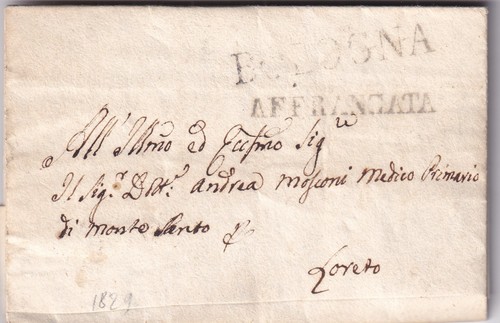 BOLOGNA
AFFRANCATA
All'Illmo ed Eccmo Sigre
Il Sigr. Dott. Andrea Mosconi Medico Primario
di Monte Santo
Loreto
1829